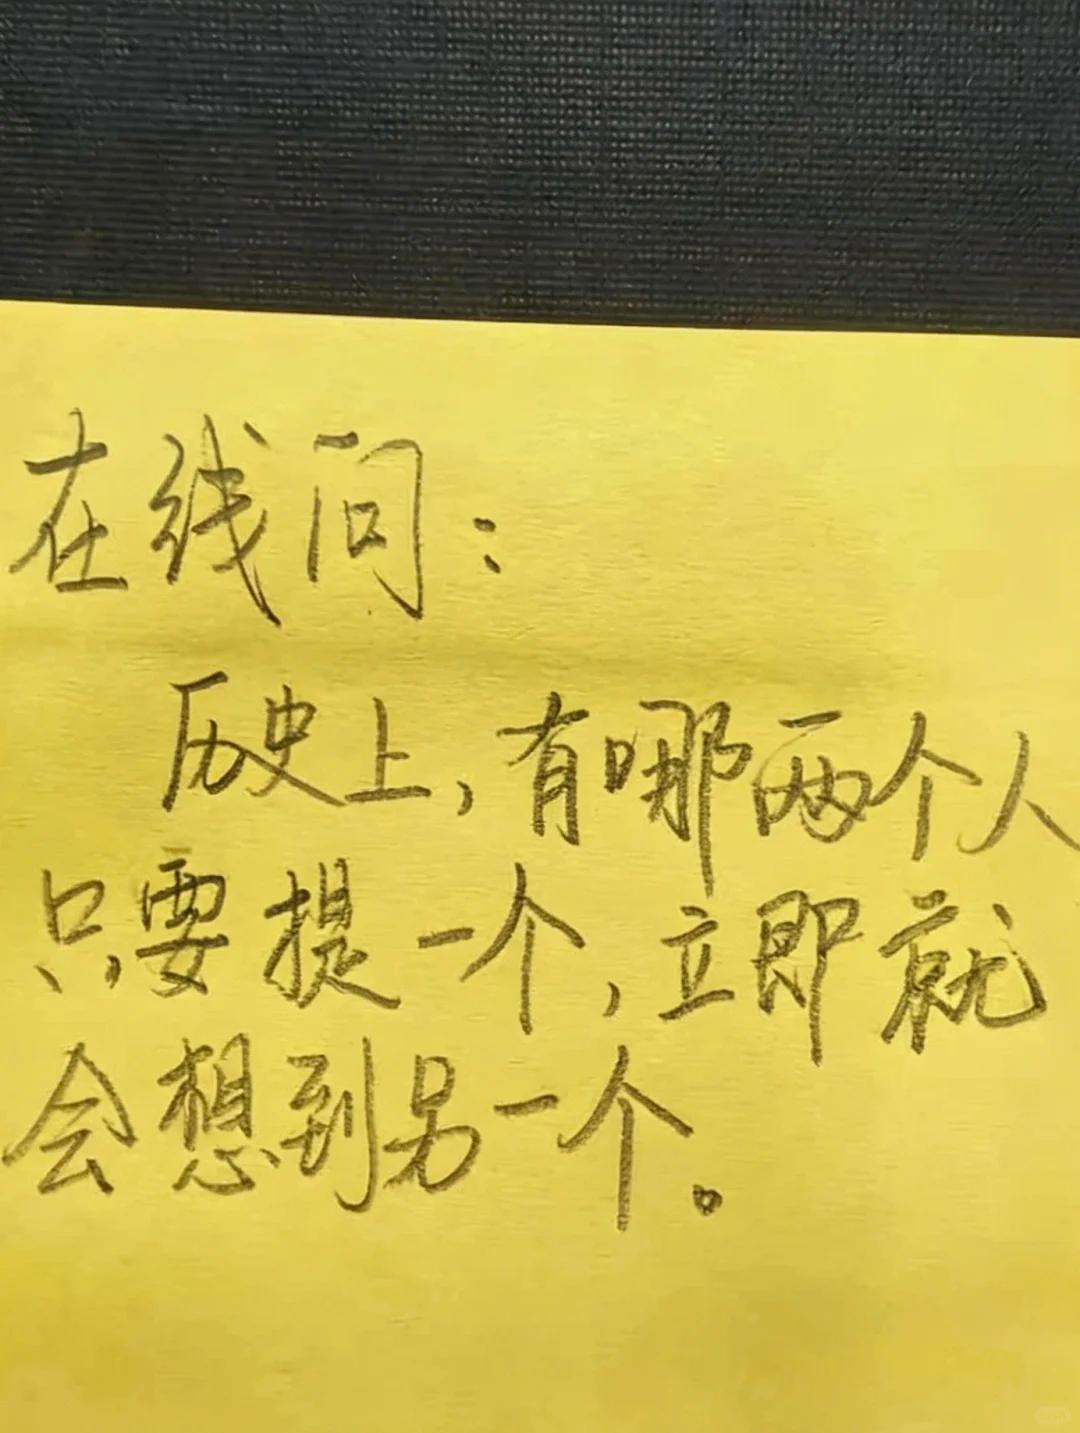 在线问:
历史上,有哪两个人
只要提一个,立即就
会想到另一个。